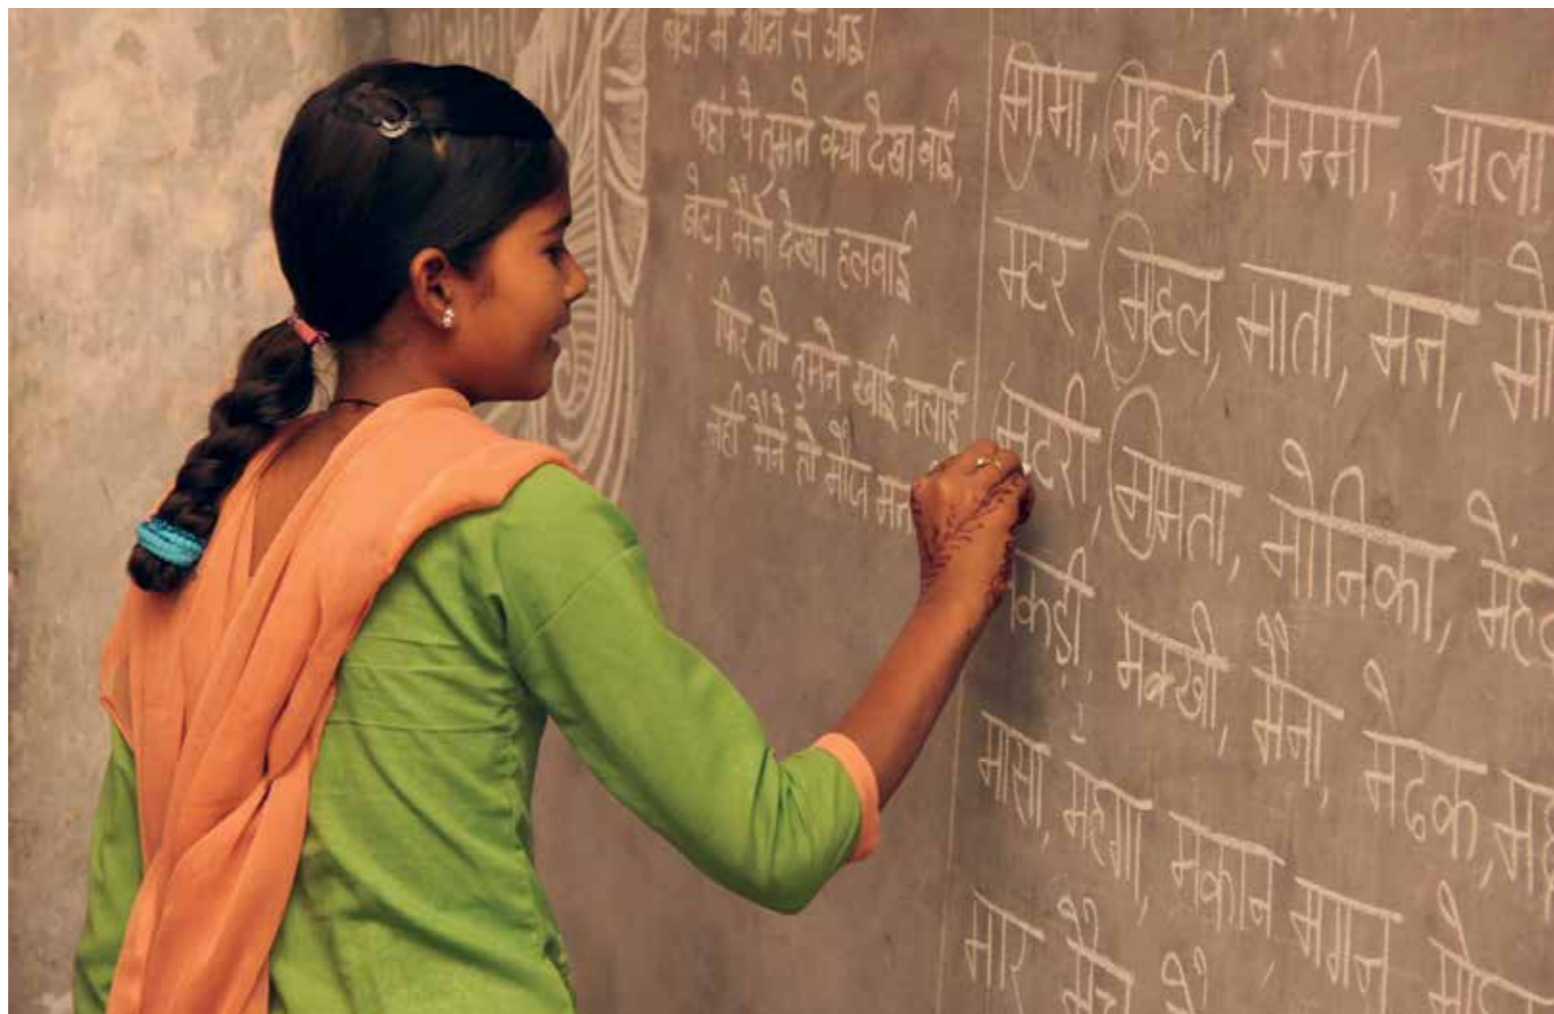 शादी से आई
पे तुमने क्या देखा बाई,
बेटा मैंने देखा हलवाई
फिर तो तुमने खाई मलाई
नही मैने तो मौज
मामा, मछली, मम्मी, माला
मटर, महल, माता, मन,
मटरी, ममता, मोनिका,
कड़ी, मक्खी, मैना, मेढक,
मासा, मकान, मगन
मार